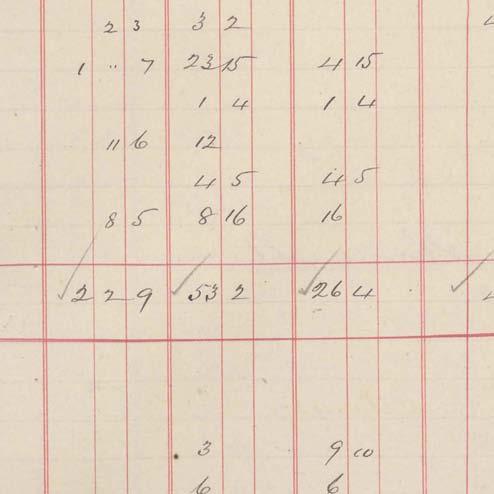 2 3 3 2
1 " 7 23 15 4 15
1 4 1 4
11 6 12
4 5 4 5
8 5 8 16 16
2 2 9 53 2 26 4
3 9 10
6 6